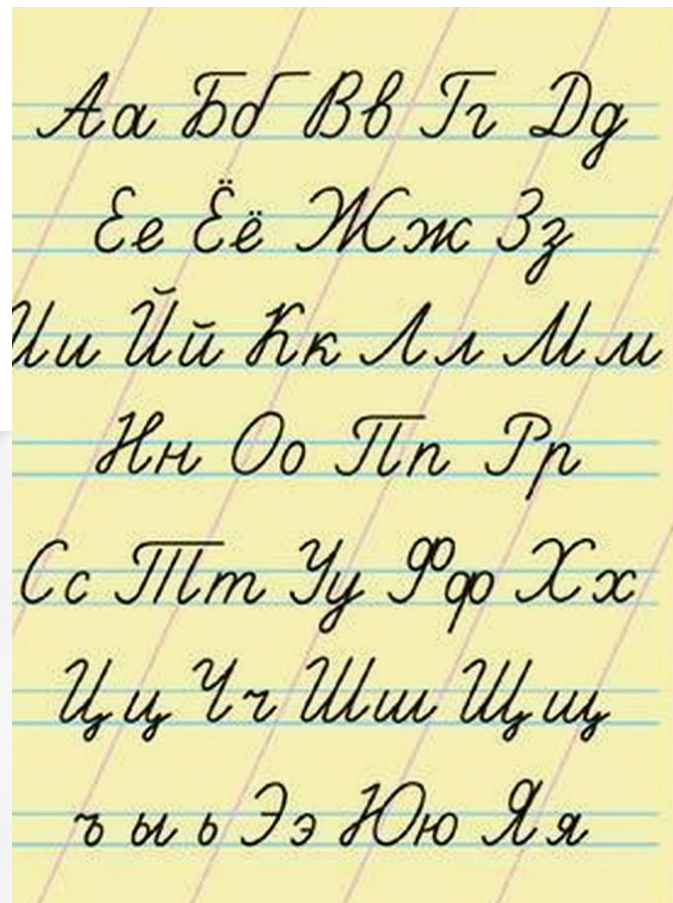 Аа Бб Вв Гг Дд
Ее Ёё Жж Зз
Ии Йй Кк Лл Мм
Нн Оо Пп Рр
Сс Тт Уу Фф Хх
Цц Чч Шш Щщ
ъ ы ь Ээ Юю Яя